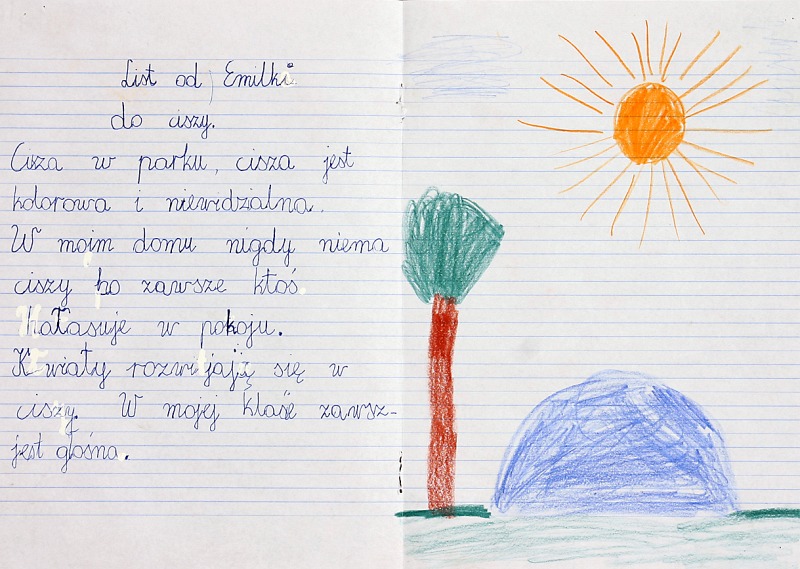 List od Emilki
do ciszy.
Cisza w parku, cisza jest
kolorowa i niewidzialna.
W moim domu nigdy niema
ciszy bo zawsze ktoś
hałasuje w pokoju.
Kwiaty rozwijają się w
ciszy. W mojej klaśe zawsz-
jest głośna.